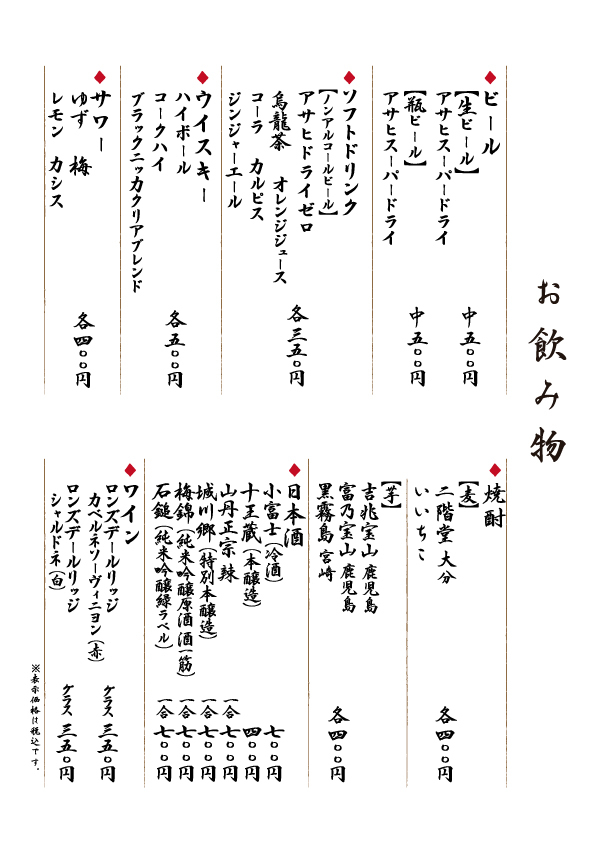 お飲み物
ビール
【生ビール】
アサヒスーパードライ
中 五〇〇円
【瓶ビール】
アサヒスーパードライ
中 五〇〇円
ソフトドリンク
【ノンアルコールビール】
アサヒドライゼロ
烏龍茶 オレンジジュース
コーラ カルピス
ジンジャーエール
各 三五〇円
ウイスキー
ハイボール
コークハイ
ブラックニッカクリアブレンド
各 五〇〇円
サワー
ゆず 梅
レモン カシス
各 四〇〇円
焼酎
【麦】
二階堂 大分
いいちこ
各 四〇〇円
【芋】
吉兆宝山 鹿児島
富乃宝山 鹿児島
黒霧島 宮崎
各 四〇〇円
日本酒
小富士(冷酒) 七〇〇円
十王蔵(本醸造) 四〇〇円
山丹正宗 辣 一合 七〇〇円
城川郷(特別本醸造) 一合 七〇〇円
梅錦(純米吟醸原酒 酒一筋) 一合 七〇〇円
石鎚(純米吟醸緑ラベル) 一合 七〇〇円
ワイン
ロンズデールリッジ
カベルネソーヴィニヨン(赤)
グラス 三五〇円
ロンズデールリッジ
シャルドネ(白)
グラス 三五〇円
※表示価格は税込です。